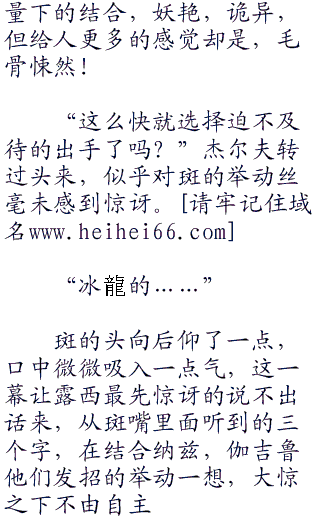 量下的结合，妖艳，诡异，
但给人更多的感觉却是，毛
骨悚然！
“这么快就选择迫不及
待的出手了吗？”杰尔夫转
过头来，似乎对斑的举动丝
毫未感到惊讶。[请牢记住域
名www.heihei66.com]
“冰龍的……”
斑的头向后仰了一点，
口中微微吸入一点气，这一
幕让露西最先惊讶的说不出
话来，从斑嘴里面听到的三
个字，在结合纳兹，伽吉鲁
他们发招的举动一想，大惊
之下不由自主